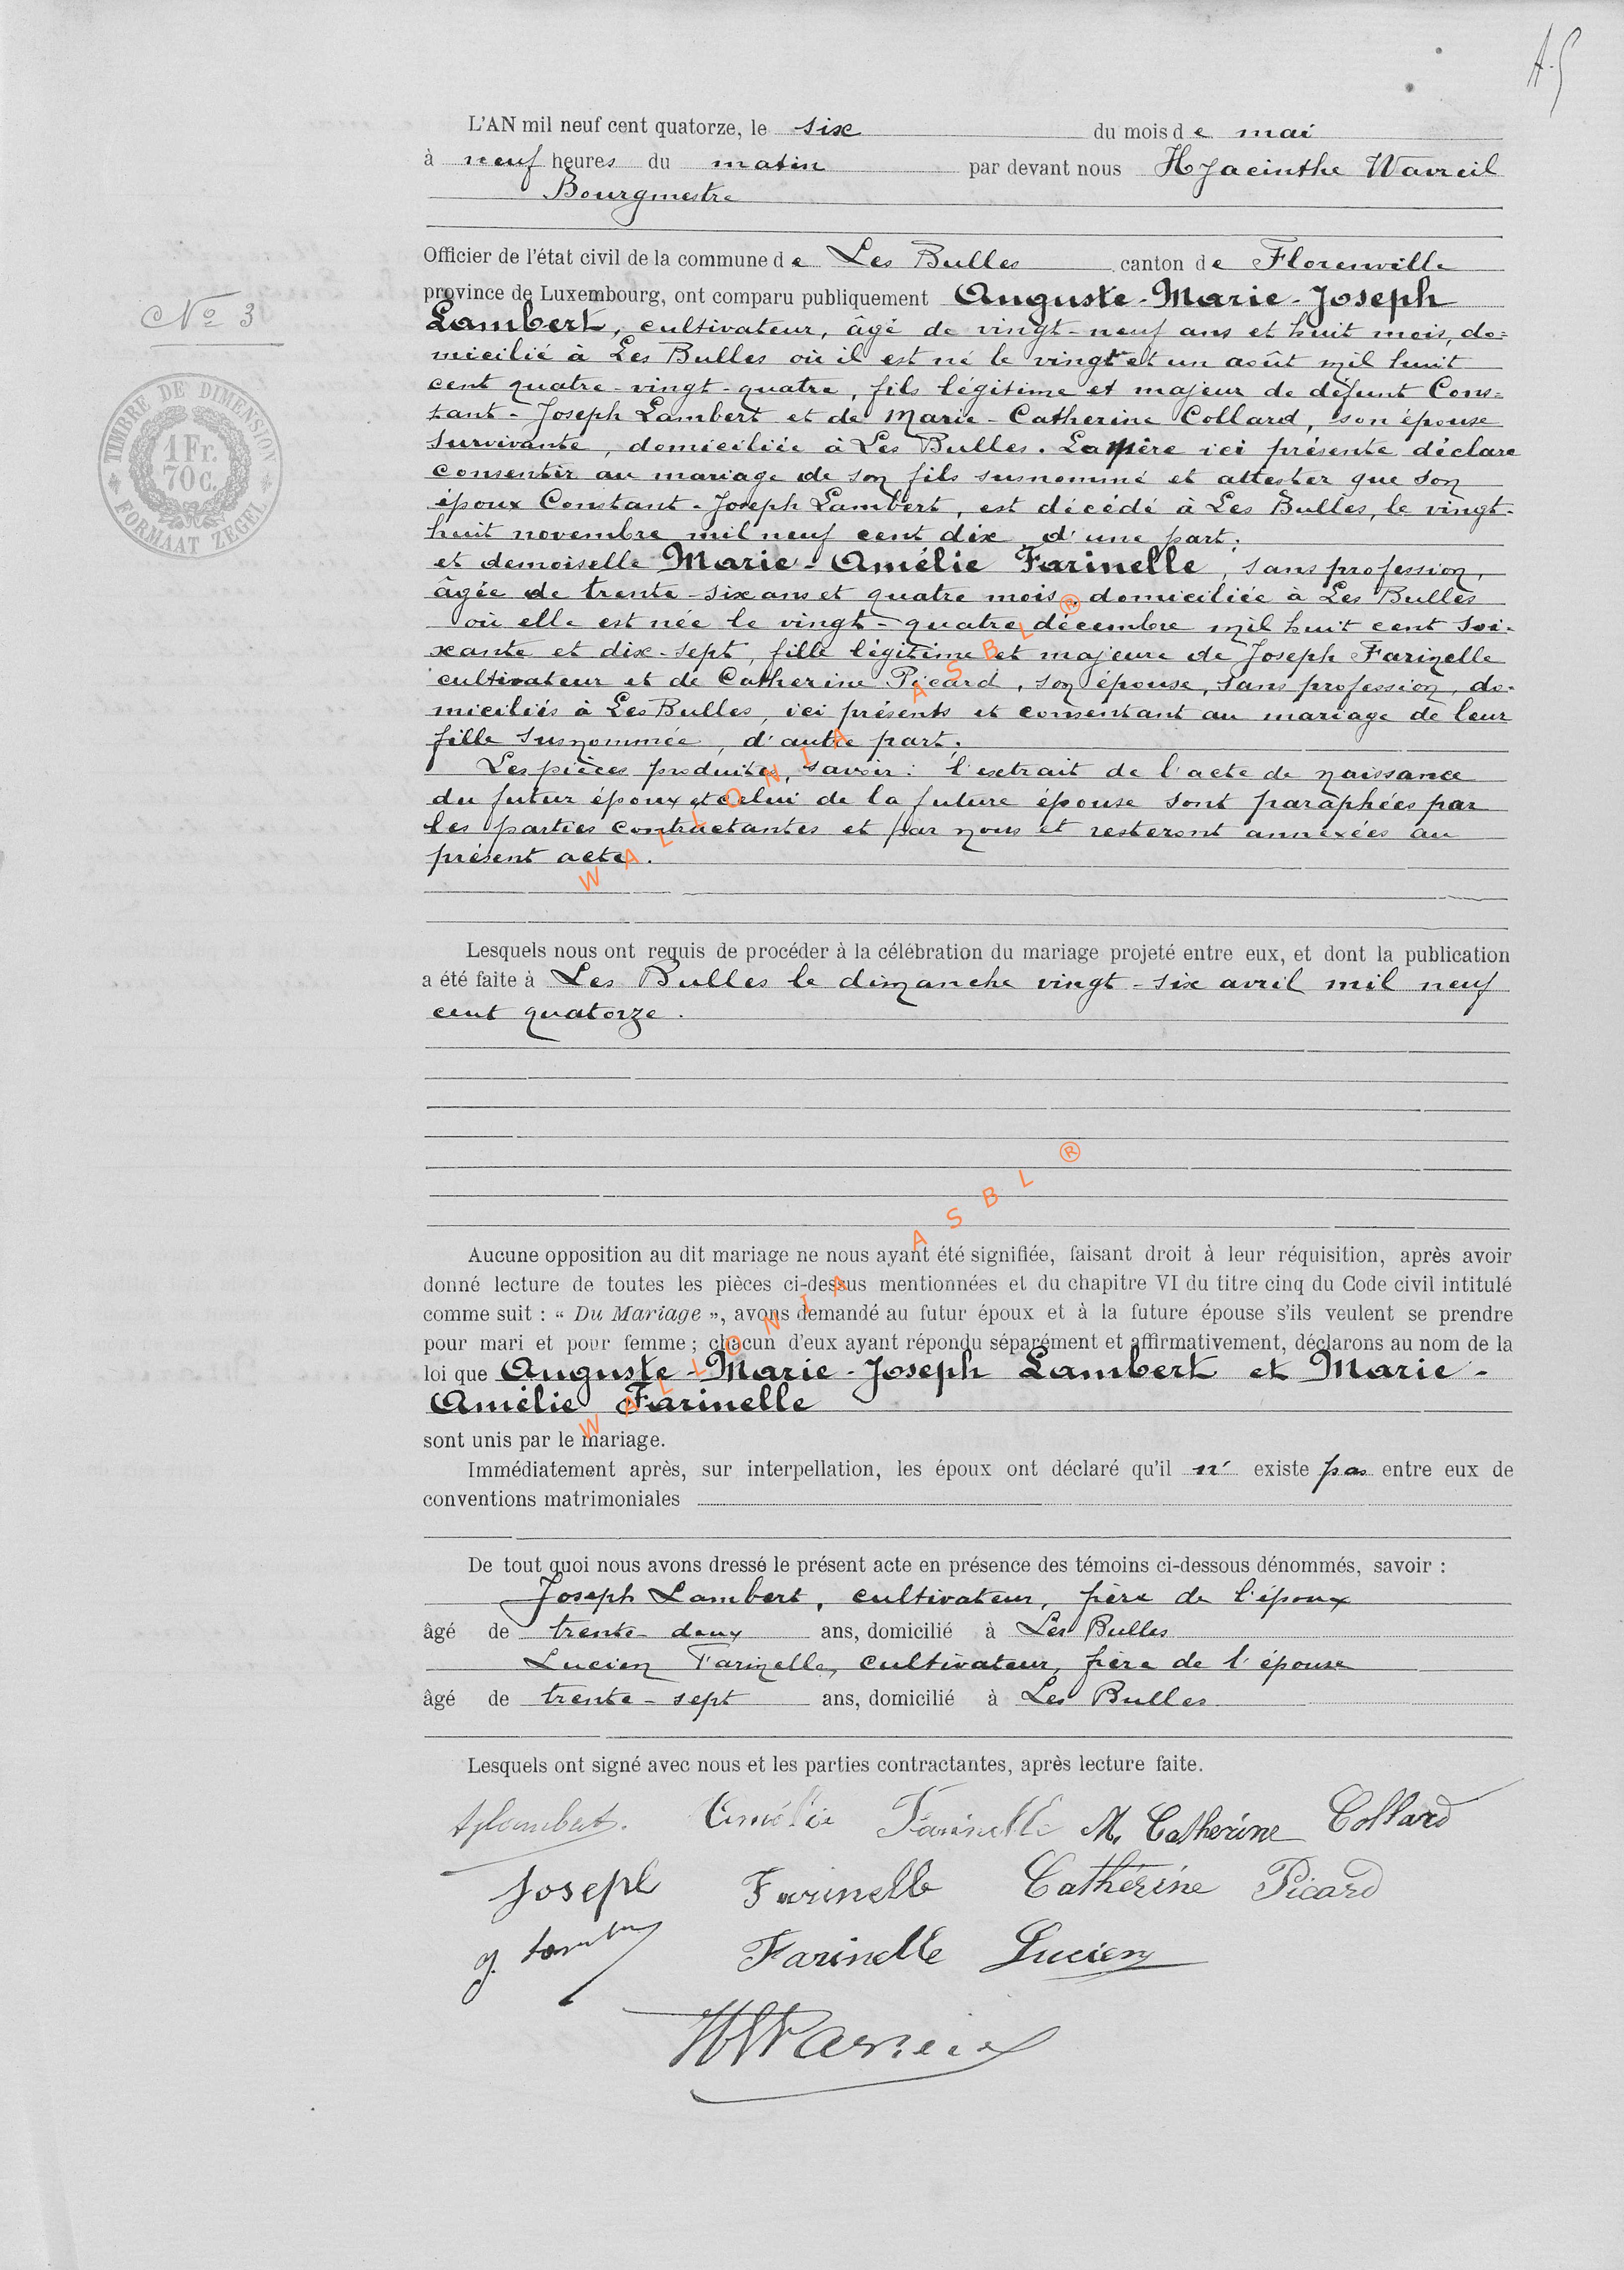 A.S
L'AN mil neuf cent quatorze, le six du mois de mai
à neuf heures du matin par devant nous Hyacinthe Wavreil
Bourgmestre
Officier de l'état civil de la commune de Les Bulles canton de Florenville
province de Luxembourg, ont comparu publiquement Auguste-Marie-Joseph
Lambert, cultivateur, âgé de vingt-neuf ans et huit mois, do=
micilié à Les Bulles où il est né le vingt et un août mil huit
cent quatre-vingt-quatre, fils légitime et majeur de défunt Cons=
tant-Joseph Lambert et de Marie-Catherine Collard, son épouse
survivante, domiciliée à Les Bulles. La mère ici présente déclare
consentir au mariage de son fils susnommé et attester que son
époux Constant-Joseph Lambert, est décédé à Les Bulles, le vingt-
huit novembre mil neuf cent dix, d'une part;
et demoiselle Marie-Amélie Farinelle, sans profession,
âgée de trente-six ans et quatre mois, domiciliée à Les Bulles
où elle est née le vingt-quatre décembre mil huit cent soi-
xante et dix-sept, fille légitime et majeure de Joseph Farinelle
cultivateur et de Catherine Picard, son épouse, sans profession, do-
miciliés à Les Bulles, ici présents et consentant au mariage de leur
fille susnommée, d'autre part;
Les pièces produites, savoir: l'extrait de l'acte de naissance
du futur époux et celui de la future épouse sont paraphées par
les parties contractantes et par nous et resteront annexées au
présent acte.
No 3
TIMBRE DE DIMENSION
1 Fr.
70 c.
FORMAAT ZEGEL
WALLONIA ASBL ®
Lesquels nous ont requis de procéder à la célébration du mariage projeté entre eux, et dont la publication
a été faite à Les Bulles le dimanche vingt-six avril mil neuf
cent quatorze.
WALLONIA ASBL ®
Aucune opposition au dit mariage ne nous ayant été signifiée, faisant droit à leur réquisition, après avoir
donné lecture de toutes les pièces ci-dessus mentionnées et du chapitre VI du titre cinq du Code civil intitulé
comme suit : « Du Mariage », avons demandé au futur époux et à la future épouse s'ils veulent se prendre
pour mari et pour femme ; chacun d'eux ayant répondu séparément et affirmativement, déclarons au nom de la
loi que Auguste-Marie-Joseph Lambert et Marie-
Amélie Farinelle
sont unis par le mariage.
Immédiatement après, sur interpellation, les époux ont déclaré qu'il n' existe pas entre eux de
conventions matrimoniales
De tout quoi nous avons dressé le présent acte en présence des témoins ci-dessous dénommés, savoir :
Joseph Lambert, cultivateur, frère de l'époux
âgé de trente-deux ans, domicilié à Les Bulles
Lucien Farinelle, cultivateur, frère de l'épouse
âgé de trente-sept ans, domicilié à Les Bulles
Lesquels ont signé avec nous et les parties contractantes, après lecture faite.
Lambert. Amélie Farinelle M. Catherine Collard
Joseph Farinelle Catherine Picard
J. Lambert Farinelle Lucien
H Wavreil